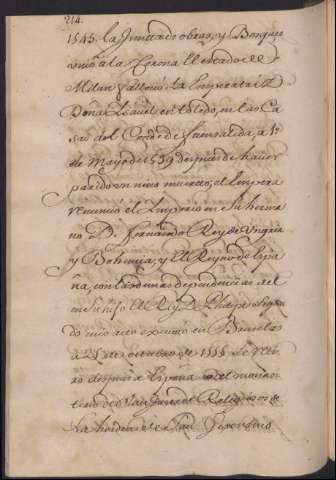 214.
1545. la Junta de obras, y Bosques
unio a la Corona El estado de
Milan falleció la Emperatriz
Doña Isavel en toledo, en las Ca
sas del Conde de fuensalida, a 1º
de Mayo de 1539 despues de haver
parido un nino muerto; el Empera
renunció el Imperio en Su herma
no D. Fernando Rey de Ungria
y Bohemia, y El Reyno de Espa
ña, con las demas dependencias del
en su hijo El Rey D. Phelipe Segun
do cuio acto executo en Bruselas
a 25 de octubre de 1555 Se retir
ro despues a España en el monas
terio de San Juste de Religiosos de
La horden de San Geronimo